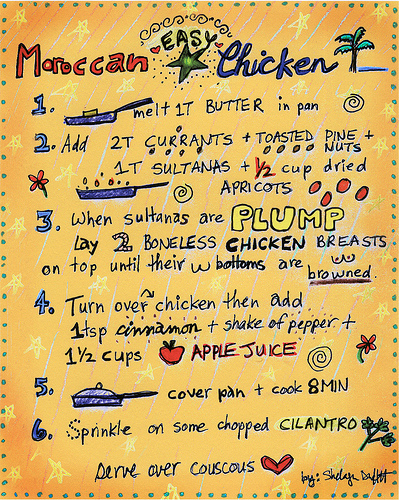 EASY
Moroccan Chicken
1. melt 1T BUTTER in pan
2. Add 2T CURRANTS + TOASTED PINE NUTS +
1T SULTANAS + 1/2 cup dried
APRICOTS
3. when sultanas are PLUMP
lay 2 BONELESS CHICKEN BREASTS
on top until their bottoms are browned.
4. Turn over chicken then add
1tsp cinnamon + shake of pepper +
1 1/2 cups APPLE JUICE
5. cover pan + cook 8 MIN
6. Sprinkle on some chopped CILANTRO
Serve over couscous
by: